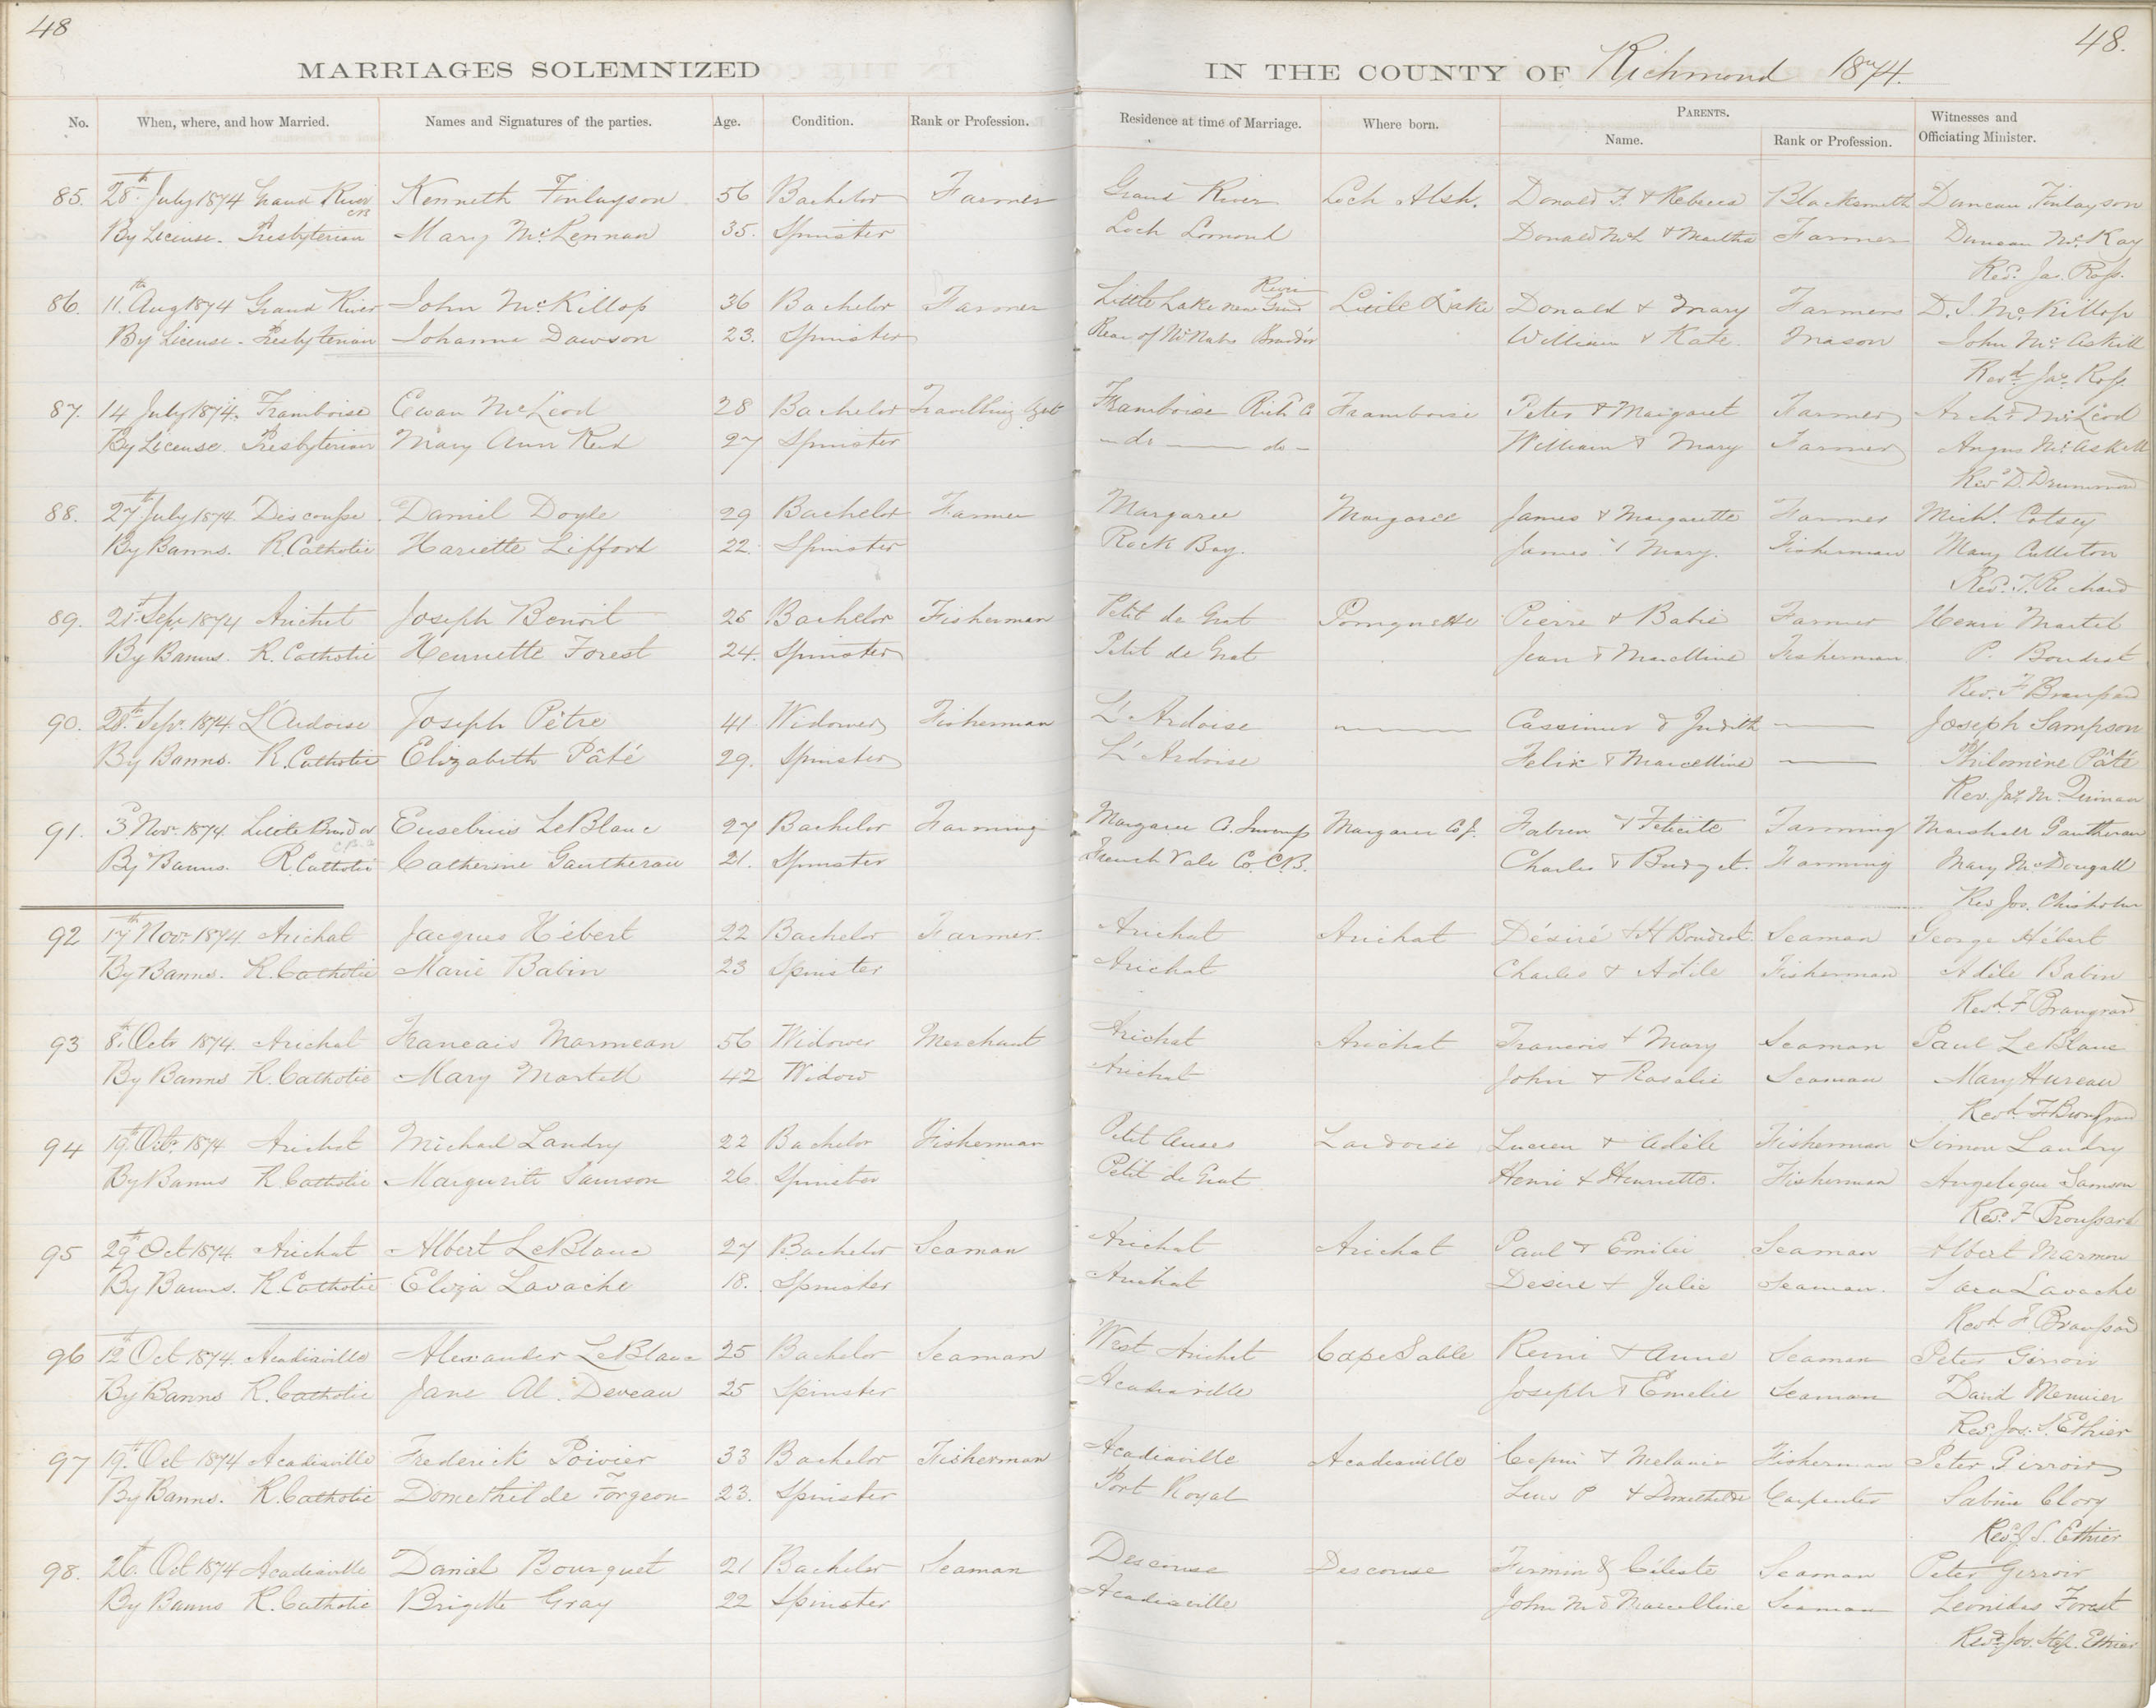 48
48.
MARRIAGES SOLEMNIZED IN THE COUNTY OF Richmond 1874.
No. When, where, and how Married. Names and Signatures of the parties. Age. Condition. Rank or Profession. Residence at time of Marriage. Where born. PARENTS. Name. Rank or Profession. Witnesses and Officiating Minister.
85. 28th July 1874 Grand River Kenneth Finlayson 56 Bachelor Farmer Grand River Loch Alsh. Donald F. & Rebecca Blacksmith Duncan Finlayson
CB
By License. Presbyterian Mary McLennan 35. Spinster Loch Lomond Donald McL & Martha Farmer Duncan McKay
Revd. Ja. Ross.
86. 11th Aug 1874 Grand River John McKillop 36 Bachelor Farmer Little Lake near Grand River Little Lake Donald & Mary Farmers D. J. McKillop
By License - Presbyterian Johanna Dawson 23. Spinster Rear of McNabs William & Kate. Mason John McAskill
Revd. Jas. Ross.
87. 14 July 1874. Framboise Ewan McLeod 28 Bachelor Travelling Agt Framboise Rich Co Framboise Peter & Margaret Farmer Archd McLeod
By License. Presbyterian Mary Ann Reid 27 Spinster - do - do - William & Mary Farmer Angus McAskill
Revd D. Drummond
88. 27th July 1874. Discousse Daniel Doyle 29 Bachelor Farmer Margaree Margaree James & Margarette Farmer Michl.
By Banns. R. Catholic Hariette Lifford 22. Spinster Rock Bay. James & Mary. Fisherman Mary Culleton
Revd. F. Richard
89. 21st Sep 1874 Arichat Joseph Benoit 25 Bachelor Fisherman Petit de Grat Pomquette Pierre & Babie Farmer Henri Martel
By Banns. R. Catholic Henriette Forest 24. Spinster Petit de Grat Jean & Marcelline Fisherman P. Boudrot
Rev. F
90. 28th Sepr. 1874. L'Ardoise Joseph Pêtre 41 Widower Fisherman L'Ardoise — Cassimer & Judith — Joseph Sampson
By Banns. R. Catholic Elizabeth Pâté 29. Spinster L'Ardoise Felix & Marcelline — Philomène Pâté
Rev. Jas. M. Quinan
91. 3d Novr. 1874. Little Bras d'or Eusebius LeBlanc 27 Bachelor Farming Margaree Margaree Fabien & Felicite Farming Marshall Gautherau
By Banns. R. Catholic Catherine Gautherau 21. Spinster French Vale Co. C.B. Charles & Bridget. Farming Mary McDougall
Rev Jos. Chisholm
92 17th Novr. 1874 Arichat Jacques Hébert 22 Bachelor Farmer. Arichat Arichat Désiré & H Boudrot. Seaman George Hébert
By Banns. R. Catholic Marie Babin 23 Spinster Arichat Charles & Adèle Fisherman Adèle Babin
Revd. F
93 8th Octr 1874. Arichat Francais Marmean 56 Widower Merchant Arichat Arichat Francois & Mary Seaman Paul LeBlanc
By Banns R. Catholic Mary Martell 42 Widow Arichat John & Rosalie Seaman Mary Hureau
Revd. F
94 19th Octr. 1874 Arichat Michael Landry 22 Bachelor Fisherman Petit Anses Lardoise Lucien & Adèle Fisherman Simon Landry
By Banns R. Catholic Margurite Samson 26 Spinster Petit de Grat Henri & Henriette. Fisherman Angelique Samson
Revd. F Broussard
95 29th Oct 1874. Arichat Albert LeBlanc 27 Bachelor Seaman Arichat Arichat Paul & Emilie Seaman Albert Marmon
By Banns. R. Catholic Eliza Lavache 18. Spinster Arichat Desire & Julie Seaman. Sara Lavache
Revd. F. Broussard
96 12th Oct 1874. Acadiaville Alexander LeBlanc 25 Bachelor Seaman West Arichat Cape Sable Remi & Anne Seaman Peter Girroir
By Banns R. Catholic Jane Al. Deveau 25 Spinster Acadiaville Joseph & Emelie Seaman David Meunier
Revd. Jos. S. Ethier
97 19th Oct 1874 Acadiaville Frederick Poivier 33 Bachelor Fisherman Acadiaville Acadiaville & Melanie Fisherman Peter Girroir
By Banns. R. Catholic Domethilde Forgeon 23. Spinster Port Royal P & Domethilde Carpenter Sabine Clory
Revd. J. S. Ethier
98. 26. Oct 1874 Acadiaville Daniel Bourquet 21 Bachelor Seaman Descouse Descouse Firmin & Céleste Seaman Peter Girroir
By Banns R. Catholic Brigitte Gray 22 Spinster Acadiaville John M & Marcelline Seaman Leonidas Forest
Revd. Jos. Stef. Ethier